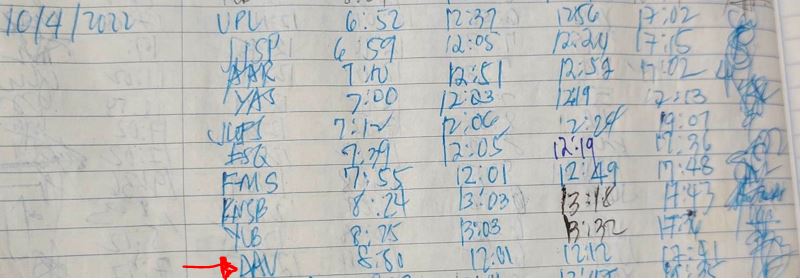 10/4/2022 UPL 6:52 12:37 1256 17:02
JJSP 6:59 12:05 12:24 17:15
AAR 7:10 12:51 12:52 17:02
YAS 7:00 12:03 1219 17:03
7:12 12:06 12:24 19:07
ESQ 7:29 12:05 12:19 17:36
FMS 7:55 12:01 12:49 17:48
ENSB 8:24 13:03 13:18 17:43
YUB 8:25 13:03 13:32
DAV 8:50 12:01 12:12 17:51